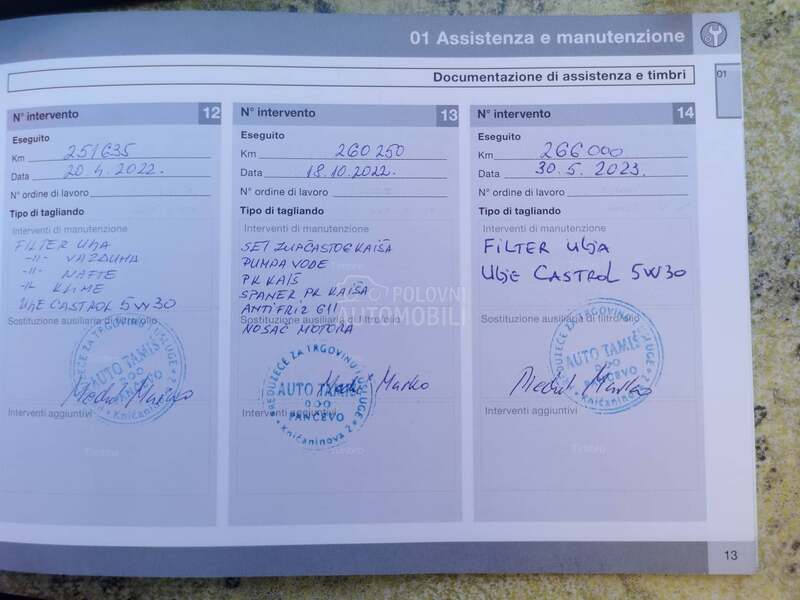 01 Assistenza e manutenzione
Documentazione di assistenza e timbri
01
N° intervento 12
Eseguito
Km 251635
Data 20.4.2022.
N° ordine di lavoro
Tipo di tagliando
Interventi di manutenzione
FILTER ULJA
-11- VAZDUHA
-11- NAFTE
-11- KLIME
ULJE CASTROL 5W30
Sostituzione ausiliaria di filtro/olio
PREDUZEĆE ZA TRGOVINU I USLUGE
AUTO TAMIŠ
DOO
PANČEVO
Kničaninova 2
Interventi aggiuntivi
N° intervento 13
Eseguito
Km 260250
Data 18.10.2022.
N° ordine di lavoro
Tipo di tagliando
Interventi di manutenzione
SET ZUPČASTOG KAIŠA
PUMPA VODE
PK KAIŠ
ŠPANER PK KAIŠA
ANTIFRIZ G11
NOSAČ MOTORA
Sostituzione ausiliaria di filtro/olio
PREDUZEĆE ZA TRGOVINU I USLUGE
AUTO TAMIŠ
DOO
PANČEVO
Kničaninova 2
Marko
Interventi aggiuntivi
N° intervento 14
Eseguito
Km 266000
Data 30.5.2023.
N° ordine di lavoro
Tipo di tagliando
Interventi di manutenzione
FILTER ULJA
ULJE CASTROL 5W30
Sostituzione ausiliaria di filtro/olio
PREDUZEĆE ZA TRGOVINU I USLUGE
AUTO TAMIŠ
DOO
PANČEVO
Kničaninova 2
Interventi aggiuntivi
POLOVNI
AUTOMOBILI
13